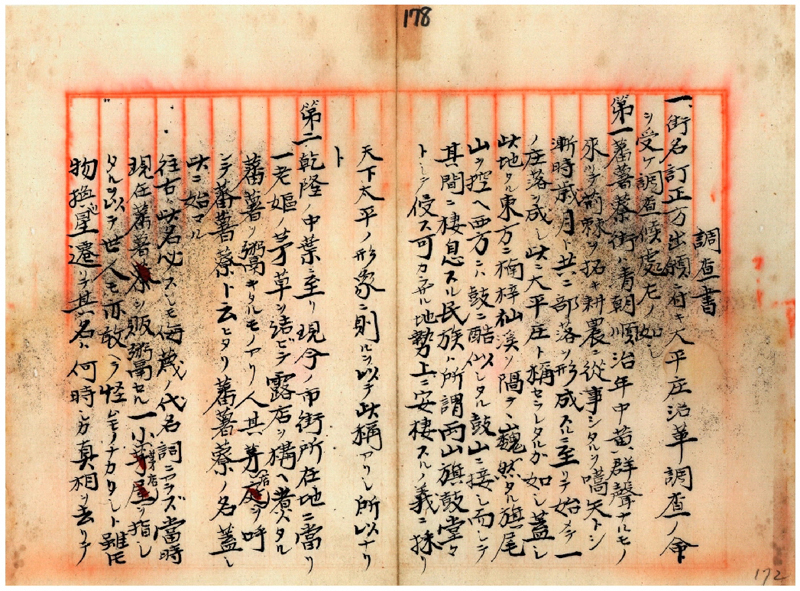 178
調査書
一、街名訂正方出願ニ付キ大平庄沿革調査ノ命
ヲ受ケ調査候処左ノ如シ
第一蕃薯藔街ハ清朝順治年中黄群聲ナルモノ
来リテ荊棘ヲ拓キ耕農ニ従事シタルヲ嚆矢トシ
漸時歳月ト共ニ部落ヲ形成スルニ至リテ始メテ一
ノ庄落ヲ成シ此ニ大平庄ト稱セラレタルガ如シ蓋シ
此地タル東方ニ楠梓仙溪ヲ隔テ巍然タル旗尾
山ヲ控ヘ西方ニハ鼓ニ酷似シタル鼓山ニ接シ而シテ
其間ニ棲息スル民族ハ所謂両山旗鼓堂々
トシテ侵ス可カラザル地勢上ニ安棲スルノ義ニ採リ
天下太平ノ形象ニ則ルヲ以テ此稱アリシ所以ナリ
ト
第二乾隆ノ中葉ニ至リ現今ノ市街所在地ニ當リ
一老嫗ノ茅草ヲ結ビテ露店ヲ構ヘ煮タル
蕃薯ヲ鬻キタルモノアリ人其茅店ヲ呼
ンテ蕃薯藔ト云ヒタリ蕃薯藔ノ名蓋シ
此ニ始マル
往古ハ此名必スシモ侮蔑ノ代名詞ニアラズ當時
現在蕃薯ヲ販鬻セル一小茅屋ヲ指シ
タルヲ以テ世人モ亦敢ヘテ怪ムモノナカリシト雖ドモ
物換星遷リテ其名ハ何時シカ真相ヲ去リテ
172